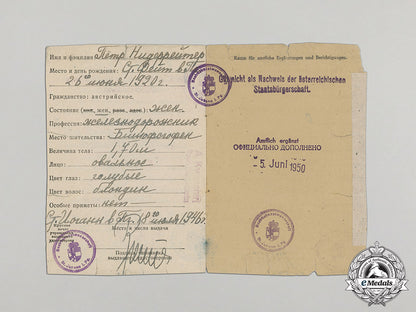 Имя и фамилия Петр Нидеррейтер
Место и день рождения: Ст. Фейт в Пг.
26го июня 1920 г.
Гражданство: австрийское.
Состояние жен.
Профессия: железнодорожник
Место жительства: Бишофсгофен
Величина тела: 1,70 м
Лицо: овальное
Цвет глаз: голубые
Цвет волос: блондин
Особые приметы: нет
Ст. Иоганн в Пг. 18го июля 1946 г.
Место и число выдачи
Raum für amtliche Ergänzungen und Berichtigungen.
Gilt nicht als Nachweis der österreichischen
Staatsbürgerschaft.
Amtlich ergänzt
ОФИЦИАЛЬНО ДОПОЛНЕНО
5. Juni 1950